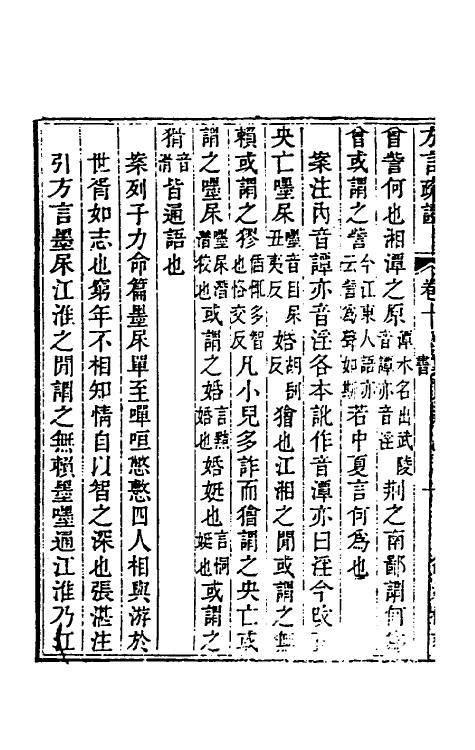 方言疏證 卷十
曾訾何也湘潭之原潭水名出武陵音譚亦音淫荆之南鄙謂何為
曾或謂之訾今江東人語亦云訾為聲如斯若中夏言何為也
案注內音譚亦音淫各本訛作音潭亦曰淫今改正
央亡嚜尿嚜音目尿丑夷反姡胡刮反獪也江湘之閒或謂之無
賴或謂之㺒多智也恪交反凡小兒多詐而獪謂之央亡或
謂之嚜尿嚜尿潛潛狡也或謂之姡言黠姡也姡娗也言恫娗也或謂之
猾音滑皆通語也
案列子力命篇墨尿單至嘽咺憋懯四人相與游於
世胥如志也窮年不相知情自以智之深也張湛注
引方言墨尿江淮之閒謂之無賴墨嚜通江淮乃江